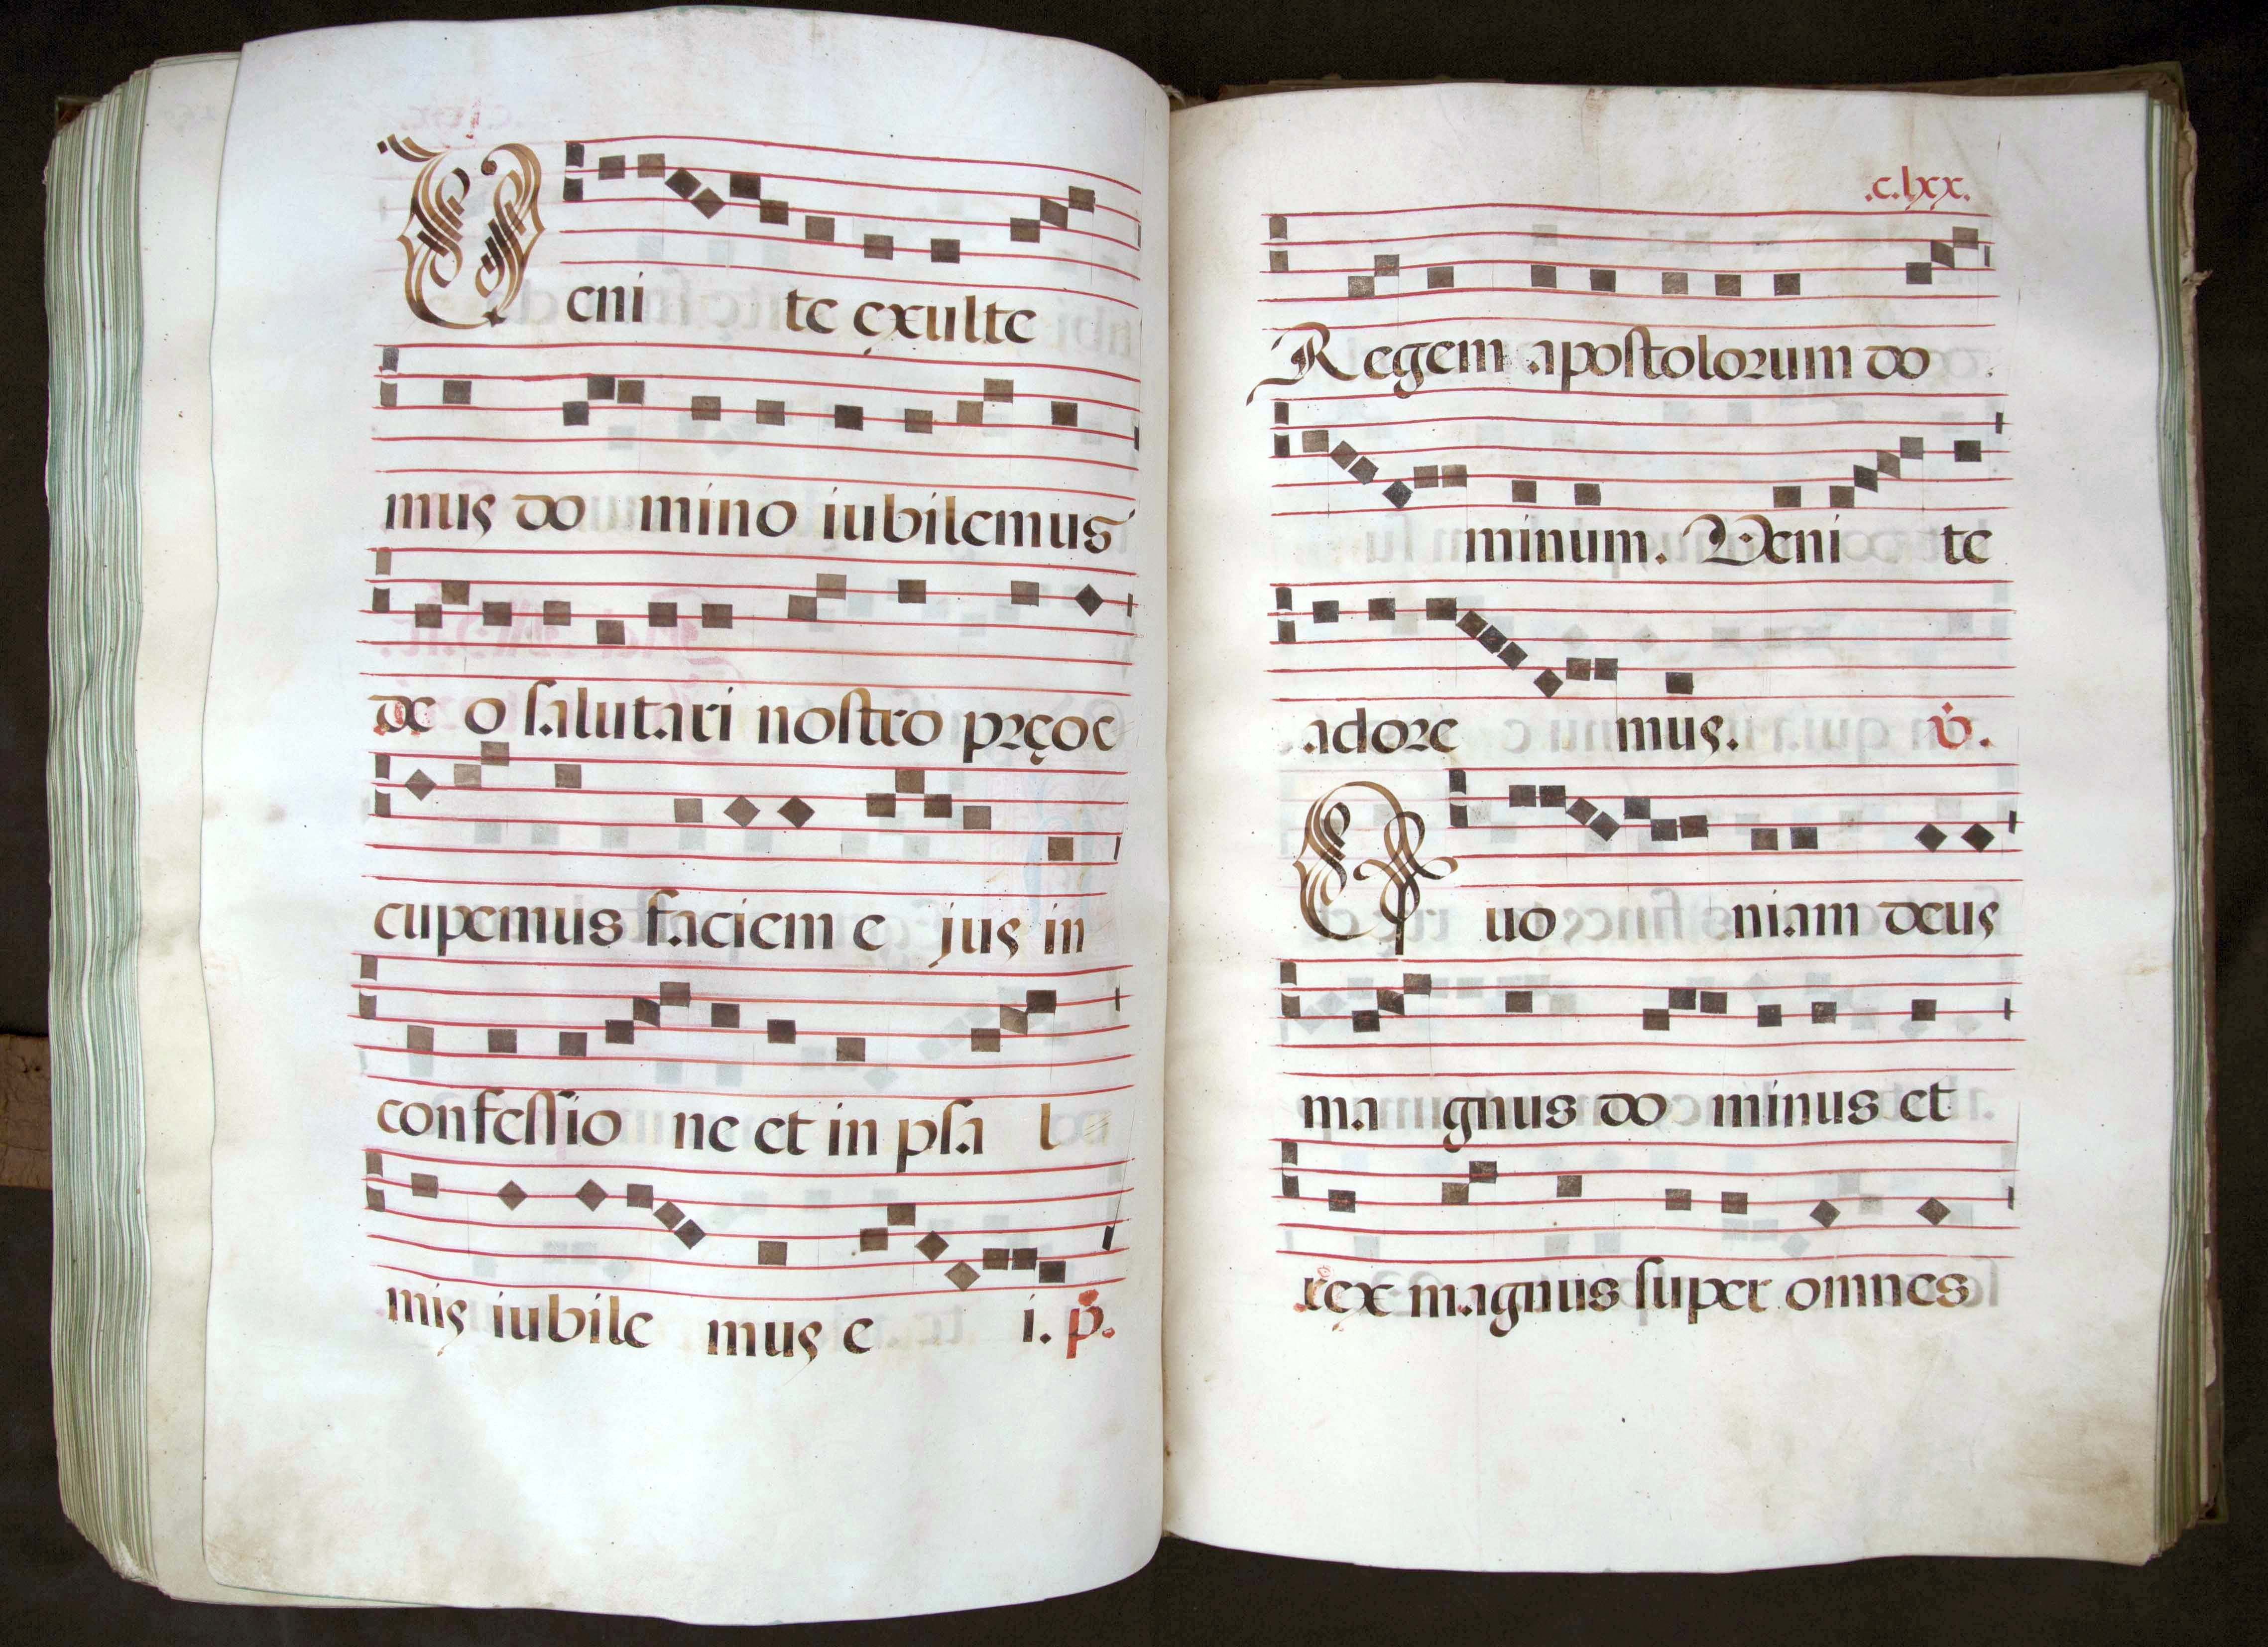 Veni te exulte
mus do mino iubilemus
de o salutari nostro preoc
cupemus faciem e jus in
confessio ne et in psa l
mis iubile mus e i. p.
.c.lxx.
Regem apostolorum do
minum. Veni te
adore mus. v.
Quo niam deus
ma gnus do minus et
rex magnus super omnes